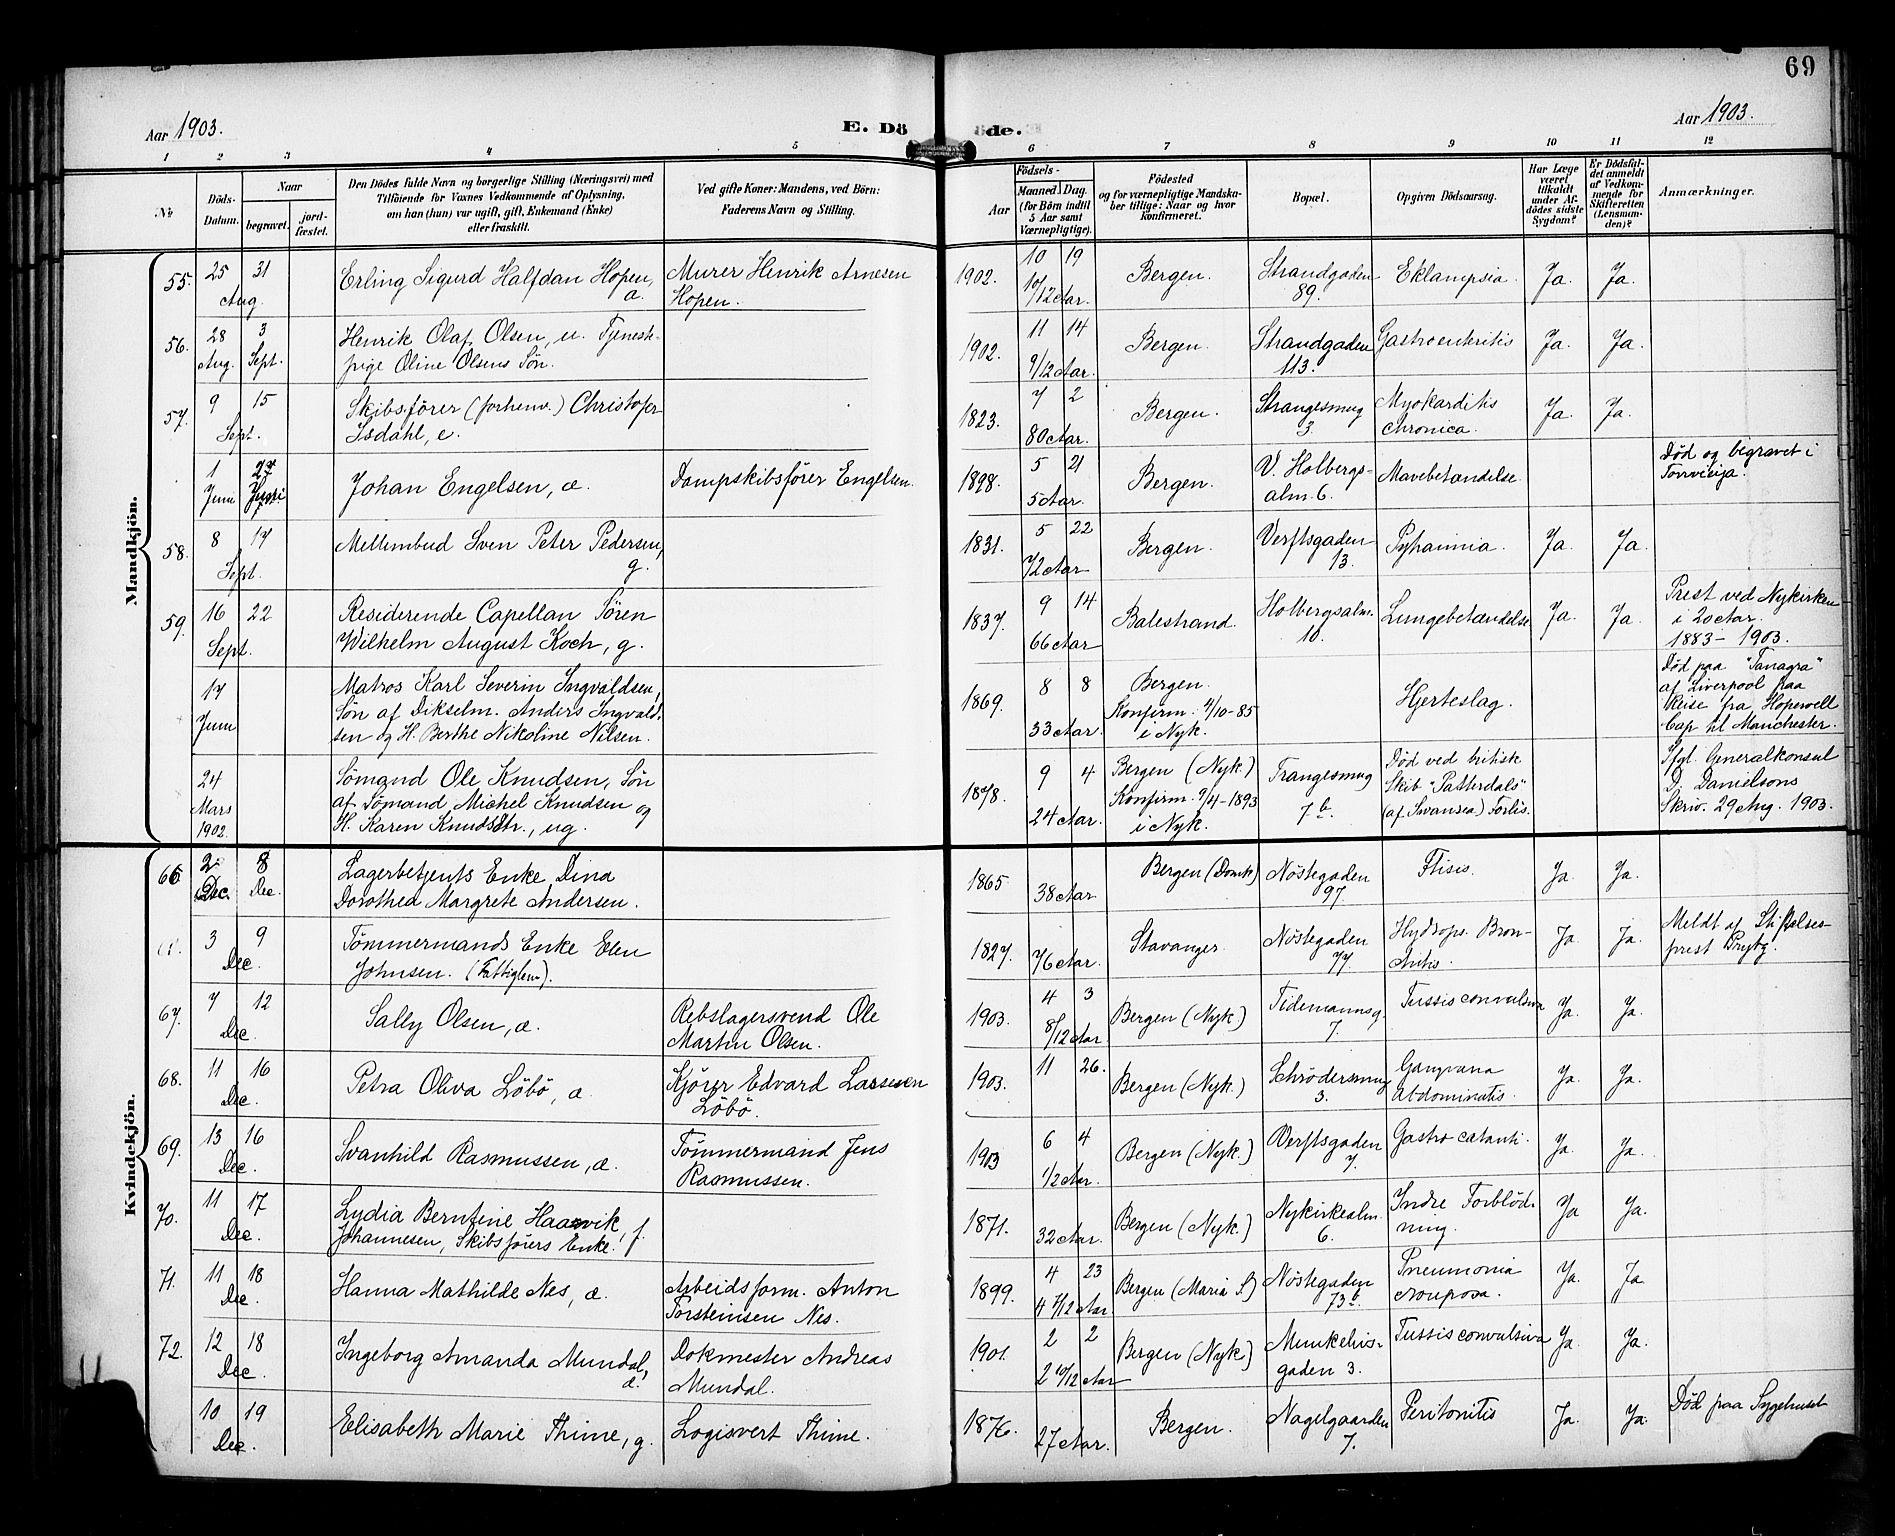 69
Aar 1903.
E. Dö
de.
Aar 1903.
1 2 3 4 5 6 7 8 9 10 11 12
No
Döds-
Datum.
Naar
begravet.
jord-
fæstet.
Den Dödes fulde Navn og borgerlige Stilling (Næringsvei) med
Tilföiende for Vaxnes Vedkommende af Oplysning,
om han (hun) var ugift, gift, Enkemand (Enke)
eller fraskilt.
Ved gifte Koner: Mandens, ved Börn:
Faderens Navn og Stilling.
Födsels-
Aar
Maaned
Dag.
(for Börn indtil
5 Aar samt
Værnepligtige).
Födested
og for værnepligtige Mandska-
ber tillige: Naar og hvor
konfirmeret.
Bopæl.
Opgiven Dödsaarsag.
Har Læge
været
tilkaldt
under Af-
dödes sidste
Sygdom?
Er Dödsfal-
det anmeldt
af Vedkom-
mende for
Skifteretten
(Lensman-
den)?
Anmærkninger.
Mandkjön.
55. 25 31 Aug. Erling Sigurd Halfdan Hopen, æ. Murer Henrik Arnesen
Hopen. 1902. 10 19 10/12 Aar. Bergen. Strandgaden
89. Eklampsia. Ja. Ja.
56. 28 Aug. 3 Sept. Henrik Olaf Olsen, u. Tjenest-
pige Oline Olsens Sön. 1902. 11 14 9/12 Aar. Bergen. Strandgaden
113. Gastroenteritis Ja. Ja.
57. 9 15 Sept. Skibsförer (forhenv.) Christofer
Isdahl, e. 1823. 7 2 80 Aar. Bergen. Strangesmug
3. Myokarditis
chronica. Ja. Ja.
1 Juni 27 Johan Engelsen, æ. Dampskibsförer Engelsen. 1898. 5 21 5 Aar. Bergen. V. Holbergs-
alm. 6. Mavebetændelse. Död og begravet i
58. 8 17 Sept. Mellembud Sven Peter Pedersen,
g. 1831. 5 22 72 Aar Bergen. Verftsgaden
13. Pyhæmia. Ja. Ja.
59. 16 22 Sept. Residerende Capellan Sören
Wilhelm August Koch, g. 1837. 9 14 66 Aar Balestrand. Holbergsalm.
10. Lungebetændelse Ja. Ja. Prest ved Nykirken
i 20 Aar.
1883 - 1903.
17 Juni Matros Karl Severin Ingvaldsen,
Sön af Dikselm. Anders Ingvald-
sen og H. Berthe Nikoline Nilsen. 1869. 8 8 33 Aar. Bergen.
Konfirm. 4/10-85
i Nyk. Hjerteslag. Död paa "Tanagra"
af Liverpool paa
Reise fra Hopewell
Cap til Manchester.
24 Mars 1902. Sömand Ole Knudsen, Sön
af Sömand Michel Knudsen og
H. Karen Knudsdtr., ug. 1878. 9 4 24 Aar. Bergen (Nyk.)
Konfirm. 9/4-1893
i Nyk. Trangesmug
7 b. Död ved britisk
Skib "Patterdals"
(af Swansea) Forlis. Ifgl. Generalkonsul
D. Danielsons
Skriv. 29 Aug. 1903.
Kvindekjön.
66 2 Dec. 8 Dec. Lagerbetjents Enke Dina
Dorothea Margrete Andersen. 1865 38 Aar Bergen (Domk) Nöstegaden
97. Ftisis. Ja. Ja.
3 9 Dec. Tömmermands Enke Elen
Johnsen. (Fattiglem). 1827. 76 Aar. Stavanger. Nöstegaden
77. Hydrops. Bron-
chitis. Ja. Ja. Meldt af Stiftelses-
prest
67. 7 12 Dec. Sally Olsen, æ. Rebslagersvend Ole
Martin Olsen. 1903. 4 3 8/12 Aar. Bergen (Nyk.) Tidemannsg.
7. Tussis convulsiva Ja. Ja.
68. 11 16 Dec. Petra Oliva Löbö, æ. Kjörer Edvard Lassesen
Löbö. 1903. 11 26. Bergen (Nyk.) Schrödersmug
3. abdominalis. Ja. Ja.
69. 13 16 Dec. Svanhild Rasmussen, æ. Tömmermand Jens
Rasmussen. 1903 6 4 1/2 Aar. Bergen (Nyk.) Verftsgaden
7. Gastro catarrh. Ja. Ja.
70. 11 17 Dec. Lydia Berntine Haasvik, f.
Johannesen, Skibsförers Enke. 1871. 32 Aar Bergen (Nyk.) Nykirkealm.
6. Indre Forblöd-
ning. Ja Ja.
71. 11 18 Dec. Hanna Mathilde Nes, æ. Arbeidsform. Anton
Torsteinsen Nes. 1899. 4 23 4 7/12 Aar Bergen (Maria S.) Nöstegaden
73 b. Pneumonia
crouposa. Ja. Ja
72. 12 18 Dec. Ingeborg Amanda Mundal,
æ. Dokmester Andreas
Mundal. 1901. 2 2 2 10/12 Aar Bergen (Nyk.) Munkehus-
gaden 3. Tussis convulsiva Ja. Ja.
10 19 Dec. Elisabeth Marie Thime, g. Logisvert Thime. 1876. 27 Aar. Bergen. Nagelgaarden
7. Peritonitis Ja. Ja. Död paa Sygehuset